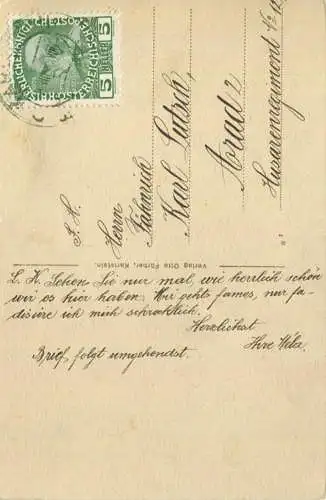 KAISERLICHE KÖNIGLICHE ÖSTERREICHISCHE POST
5 HELLER 5
S. H.
Herrn
Fähnrich
Karl
Arad
Husarenregiment
Verlag Otto Färber, Karlstein.
L. K. Sehen Sie nur mal, wie herrlich schön
wir es hier haben. Mir gehts famos, nur fa-
disiere ich mich schrecklich.
Herzlichst
Ihre
Brief folgt umgehendst.